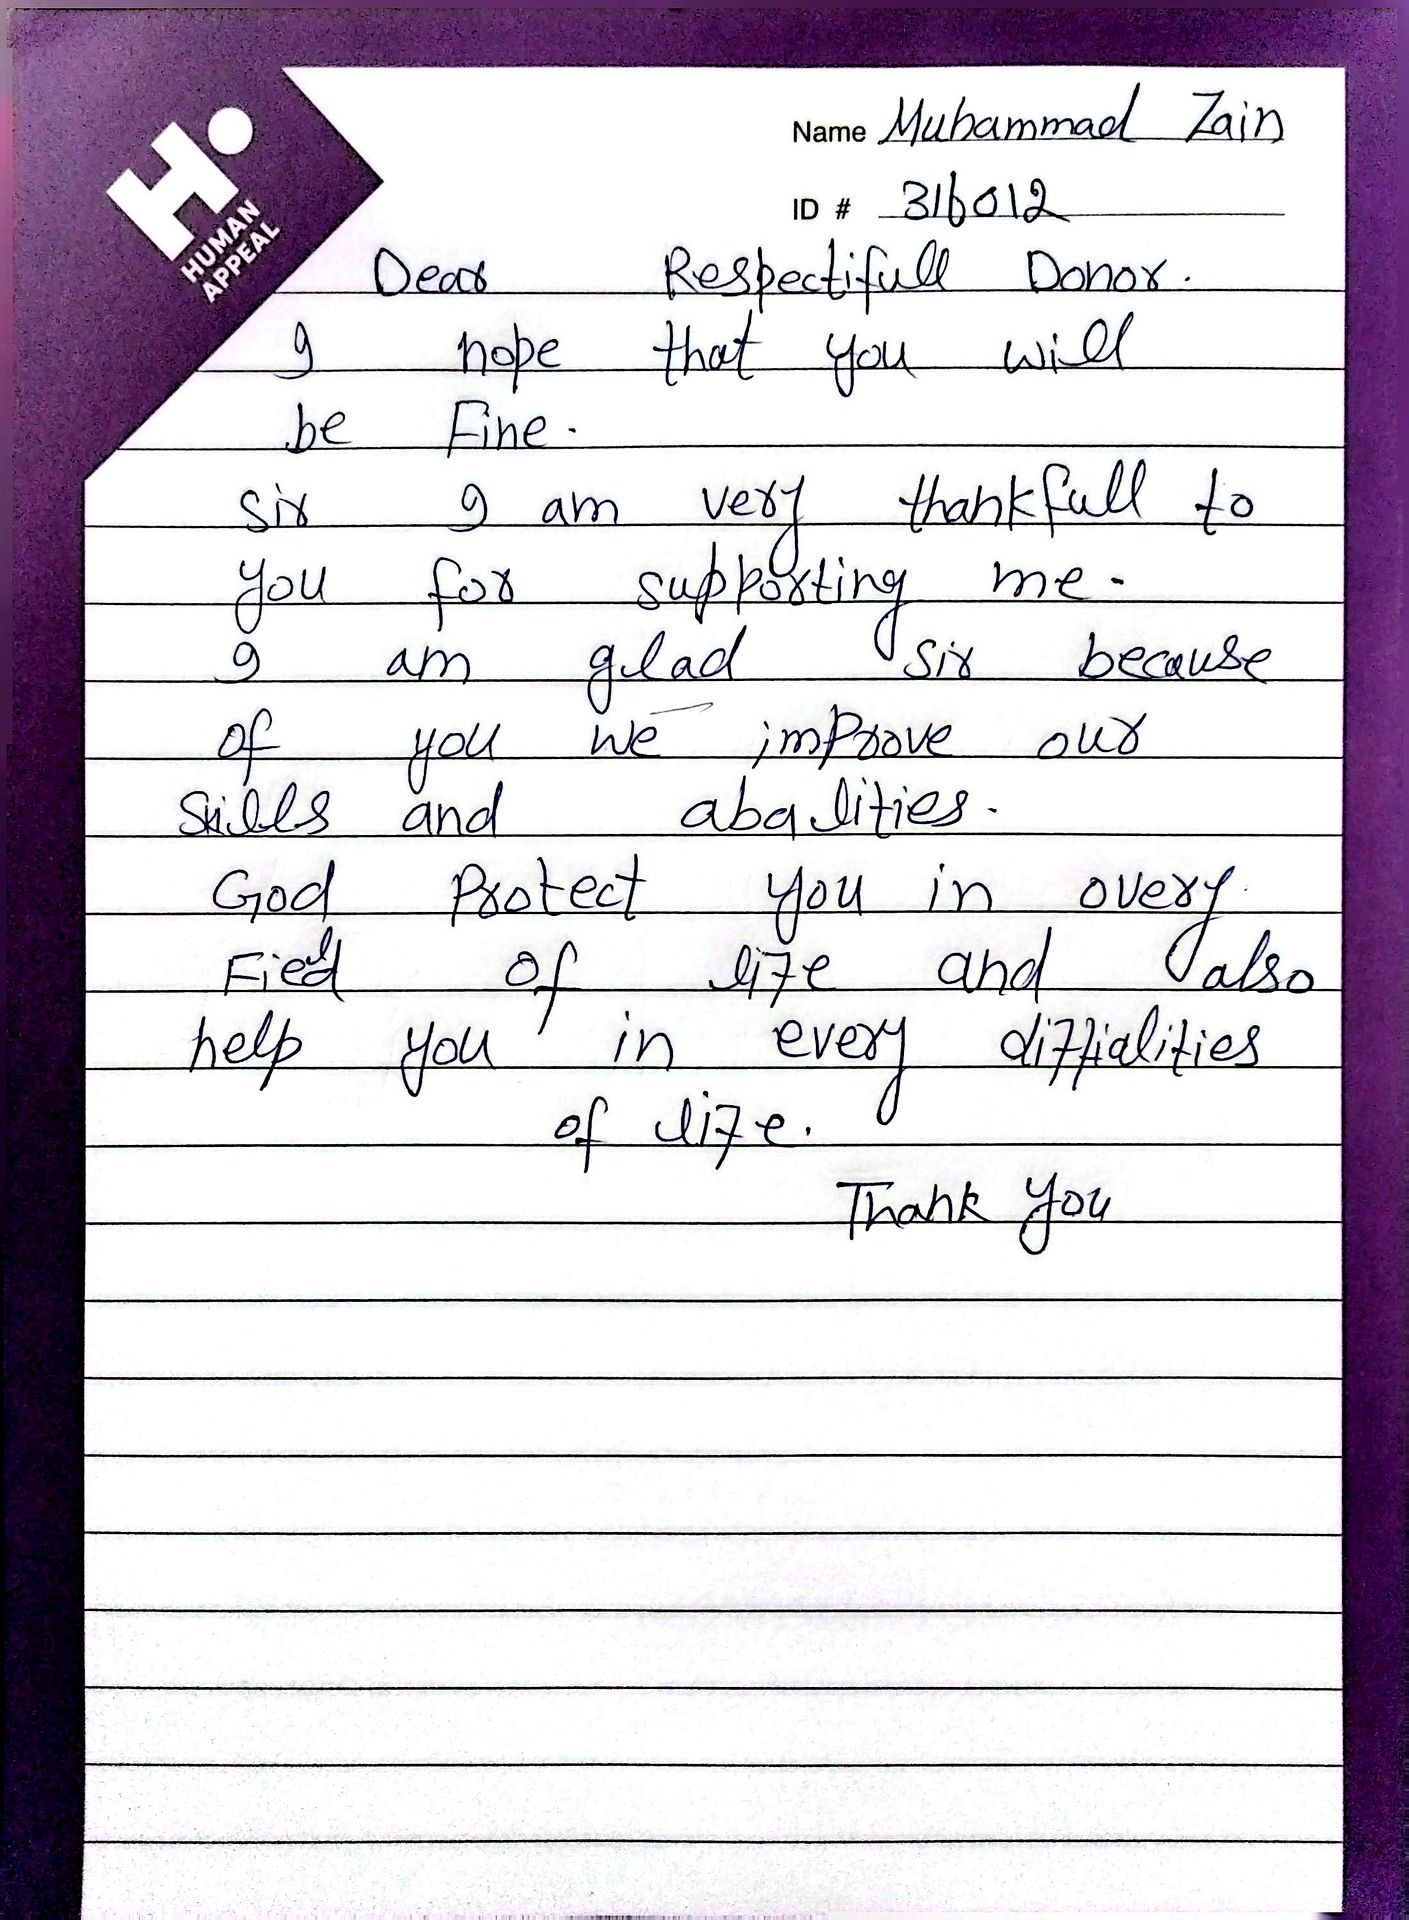 HUMAN
APPEAL
Name Muhammad Zain
ID # 316012
Dear Respectifull Donor.
I hope that you will
be Fine.
sir I am very thankfull to
you for supporting me.
I am glad sir because
of you we improve our
Skills and abaalities.
God Protect you in overy
Field of life and also
help you in every diffialities
of life.
Thank You